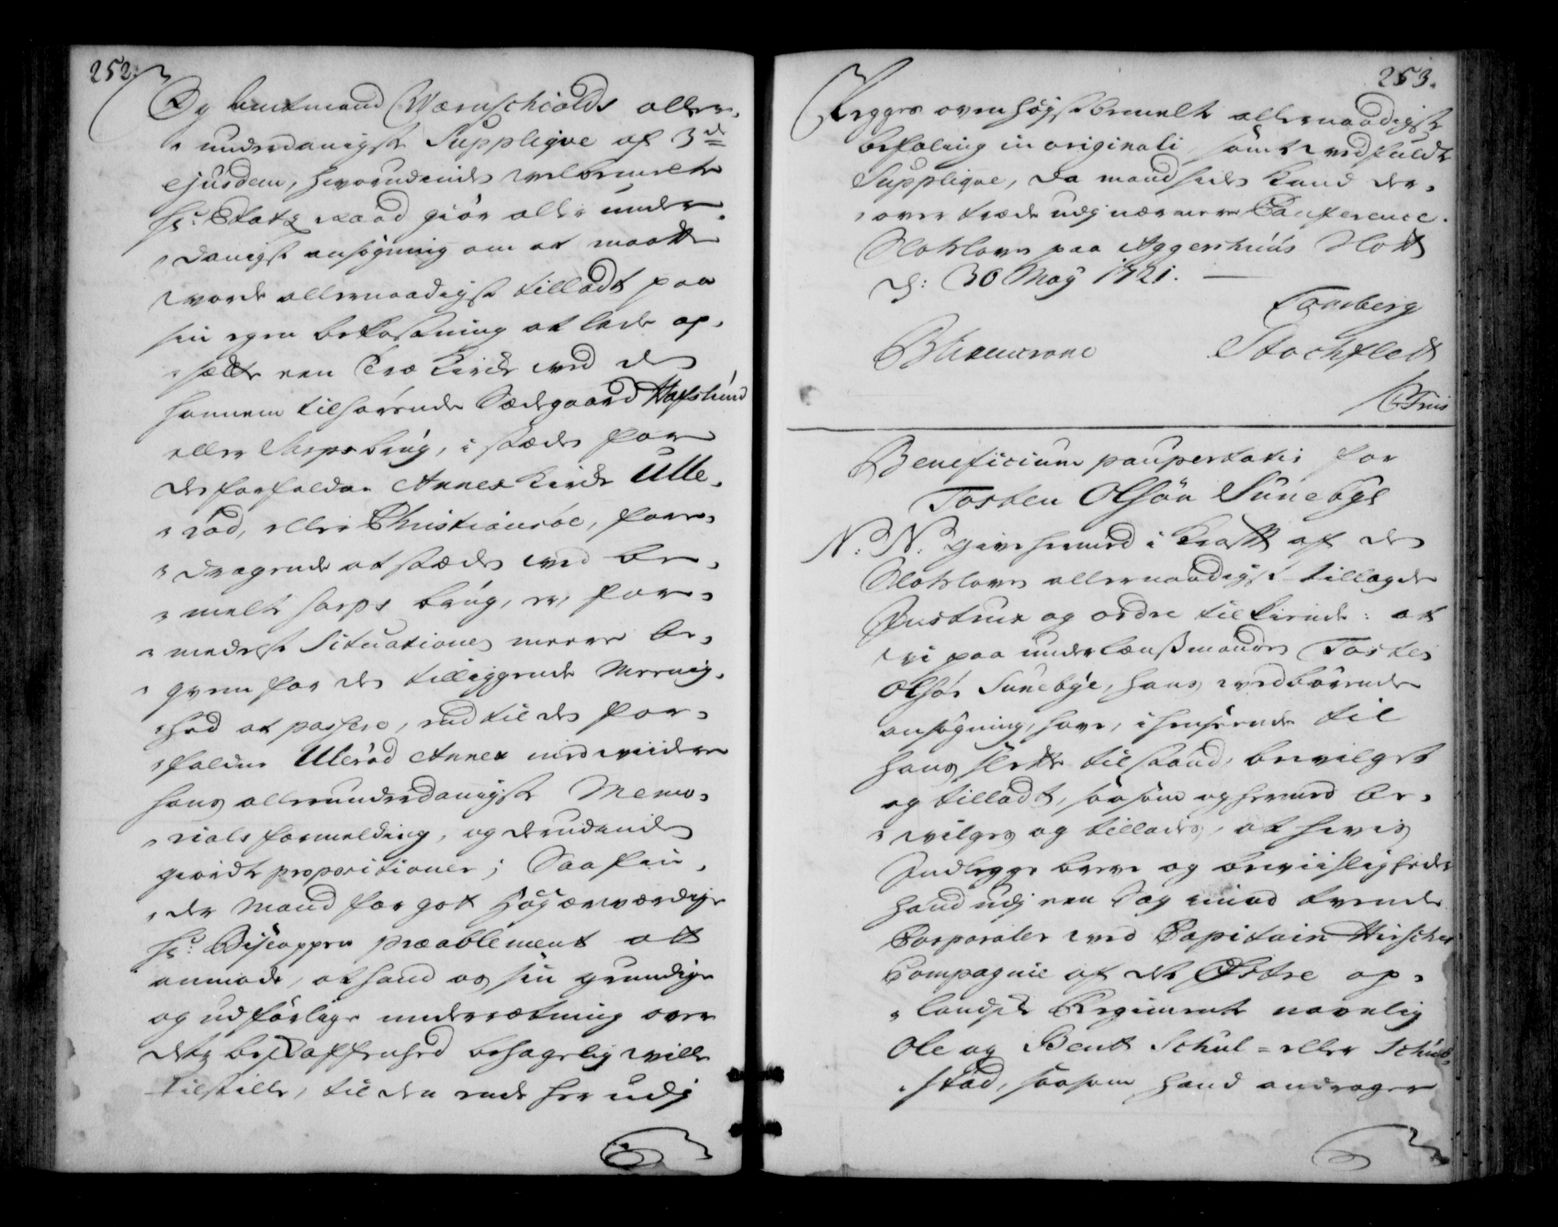 252.
Og Amtmand Wærnschiolds aller,
, underdanigste Supplique af 3de
ejusdem, hvorudinden velbemelte
Hr. Etatz Raad giör aller under,
, danigst ansögning om at maatte
vorde allernaadigst tilladt paa
sin egen bekostning at lade op,
, sætte een Træ Kirke ved den
hannem tilhörende Sædegaard Hafslund
eller Sarpsbrug, i stæden for
den forfaldne Annex Kirke Ulle,
, röd, eller Christiansöe, fore,
, dragende at stæden ved be,
, melte Sarps brug, er, for,
, medelst Situationen meere be,
, qvem for den tilliggende Meenig,
, hed at passere, end til den for,
, faldne Ulleröd Annex med viidere
hans allerunderdanigste Memo,
, rials formelding, og derudinden
giorde propositioner; Saa fin,
, der Mand for got Högærværdige
Hr. Biscoppen præalablement at
anmode, at hand os sin grundige
og udförlige underrætning over
dets beskaffenhed behagelig ville
tilstille, til den ende her udj
253.
Legges ovenhögstbemelte allernaadigste
befaling in originali, samt vedfulde
Supplique, da mand siden kand der,
, over træde udj nærmere Conference.
Slotsloven paa Aggershuus Slott
d: 30 May 1721.
Tonsberg
Blixencrone Stochflett
Beneficium paupertatis for
Tosten Olsön Sunebye
N: N: giver hermed i Krafft af den
Slotsloven allernaadigst tillagde
Instrux og ordre tilkiende: at
vi paa underlænssmanden Tosten
Olsön Sunebye, hans vedbörende
ansögning, have, i henseende til
hans slette tilstand, bevilget
og tilladt, saasom og hermed be,
, vilges og tillades, at hvis
Indlegge breve og beviisligheder
hand udj een Sag imod tvende
Corporaler ved Capitain Hirschs
Compagnie af det Östre op,
, landske Regimente navnlig
Ole og Bent Schul = eller Schul,
, stad, saasom hand andrager